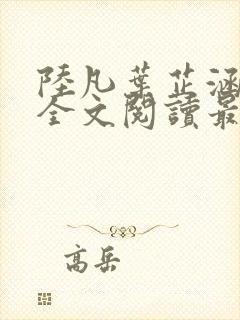 陸凡葉芷涵
全文閱讀最
高岳